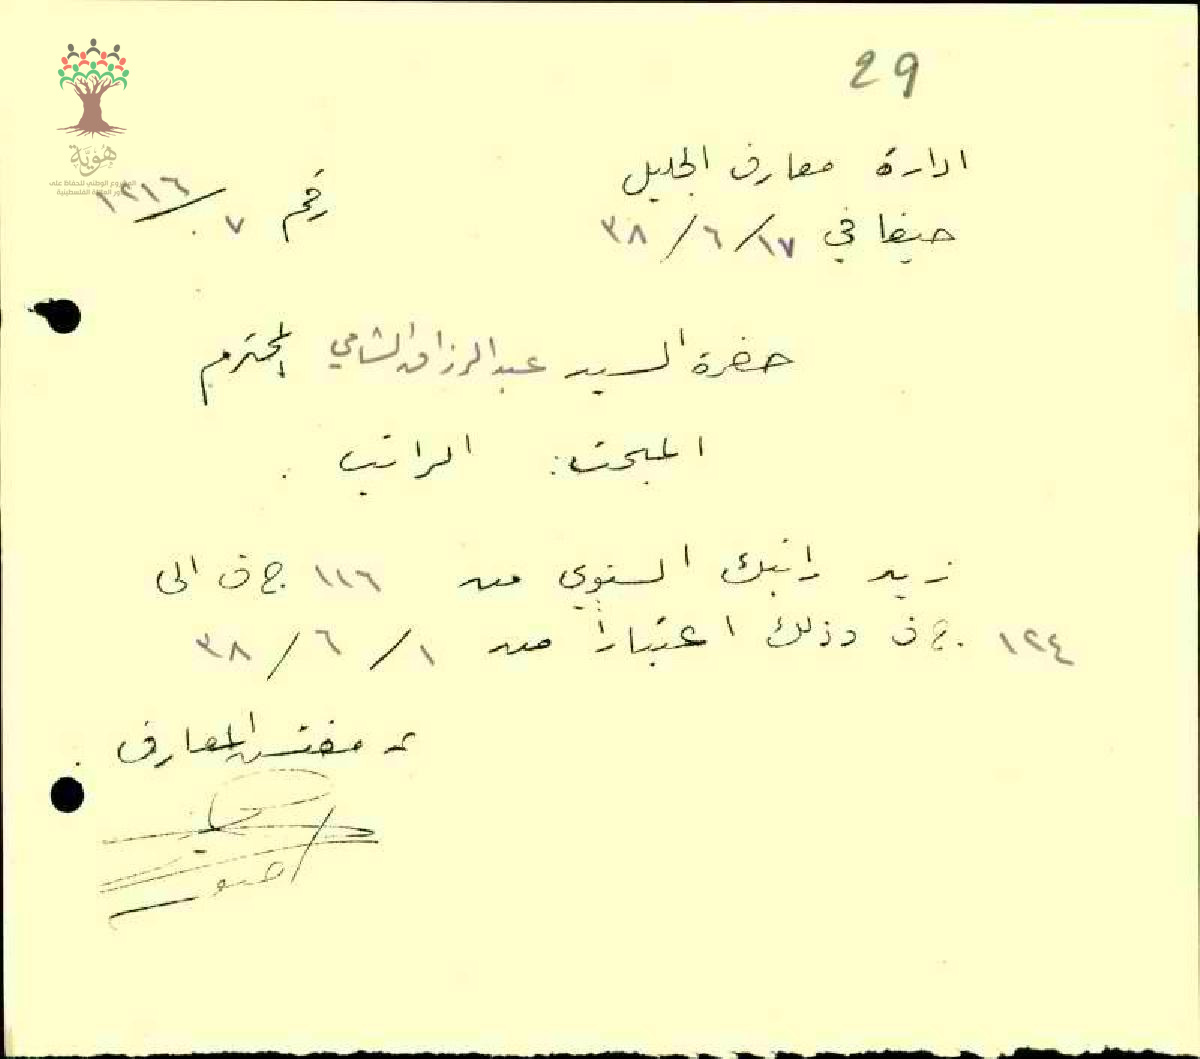 29
ادارة معارف الجليل
حيفا في ١٧/٦/٣٨
رقم ٧/١٢١٦
هُوِيَّة
المشروع الوطني للحفاظ على
جذور العائلة الفلسطينية
حضرة السيد عبد الرزاق الشامي المحترم
المبحث: الراتب .
زيد راتبك السنوي من ١١٦ ج ف الى
١٢٤ ج ف وذلك اعتباراً من ١/٦/٣٨
عن مفتش المعارف